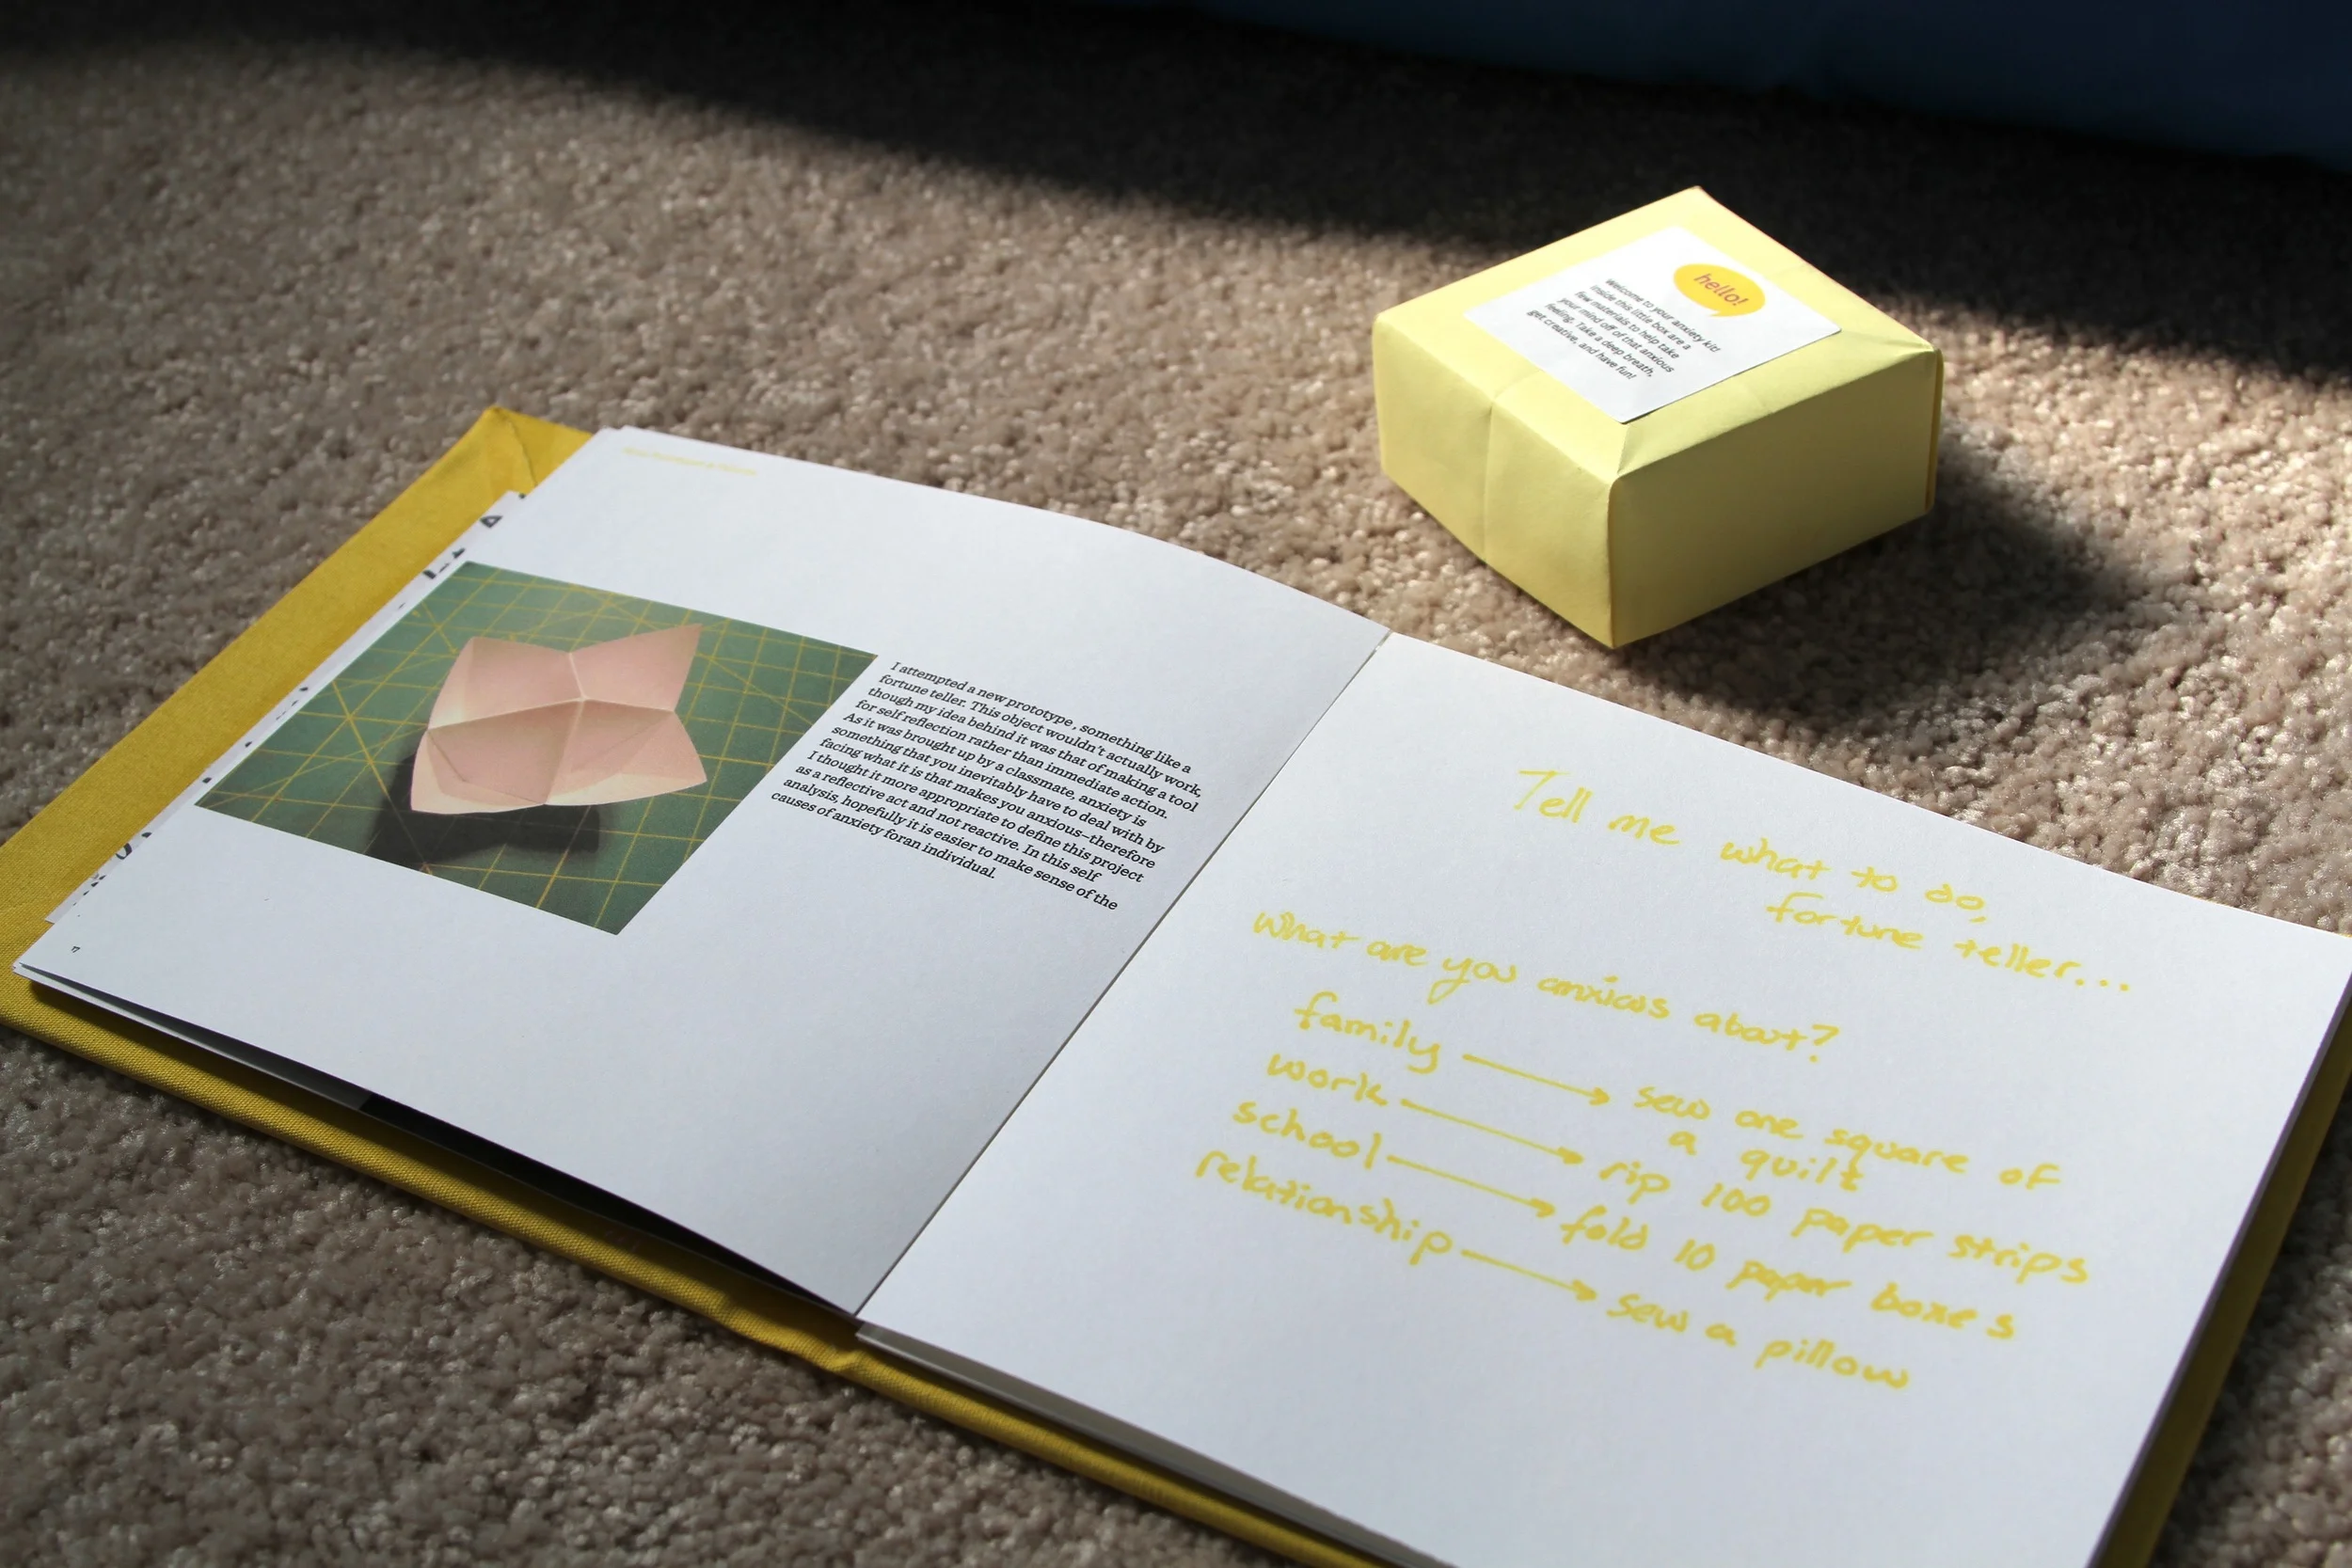 hello!
Welcome to your anxiety kit!
Inside this little box are a
few materials to help take
your mind off of that anxious
feeling. Take a deep breath,
get creative, and have fun!
I attempted a new prototype, something like a
fortune teller. This object wouldn't actually work,
though my idea behind it was that of making a tool
for self reflection rather than immediate action.
As it was brought up by a classmate, anxiety is
something that you inevitably have to deal with by
facing what it is that makes you anxious—therefore
I thought it more appropriate to define this project
as a reflective act and not reactive. In this self
analysis, hopefully it is easier to make sense of the
causes of anxiety foran individual.
17
Tell me what to do,
fortune teller...
What are you anxious about?
family → sew one square of
a quilt
work → rip 100 paper strips
school → fold 10 paper boxes
relationship → sew a pillow